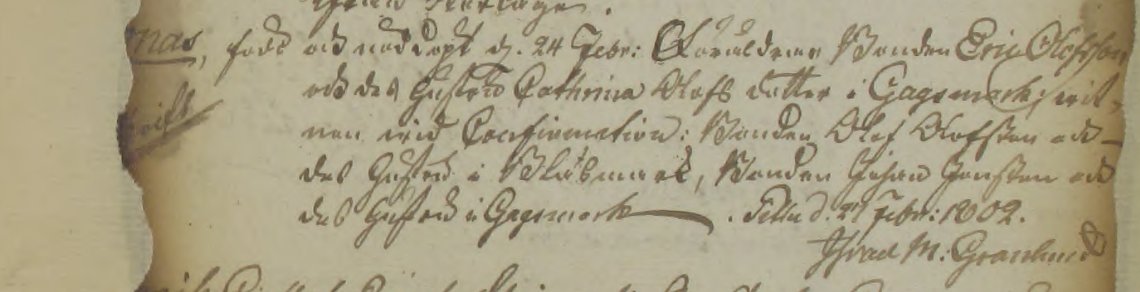 nas, född och nöddöpt d. 24 Febr: Föräldrar Bonden Eric Olofsson
och des Hustru Cathrina Olofs dotter i Gagsmark; wit-
nen wid Confirmation: Bonden Olof Olofsson och
des Hustru i Blåsmark, Bonden Johan Jonsson och
des Hustru i Gagsmark. d. 27 Febr: 1802.
M: Granlund